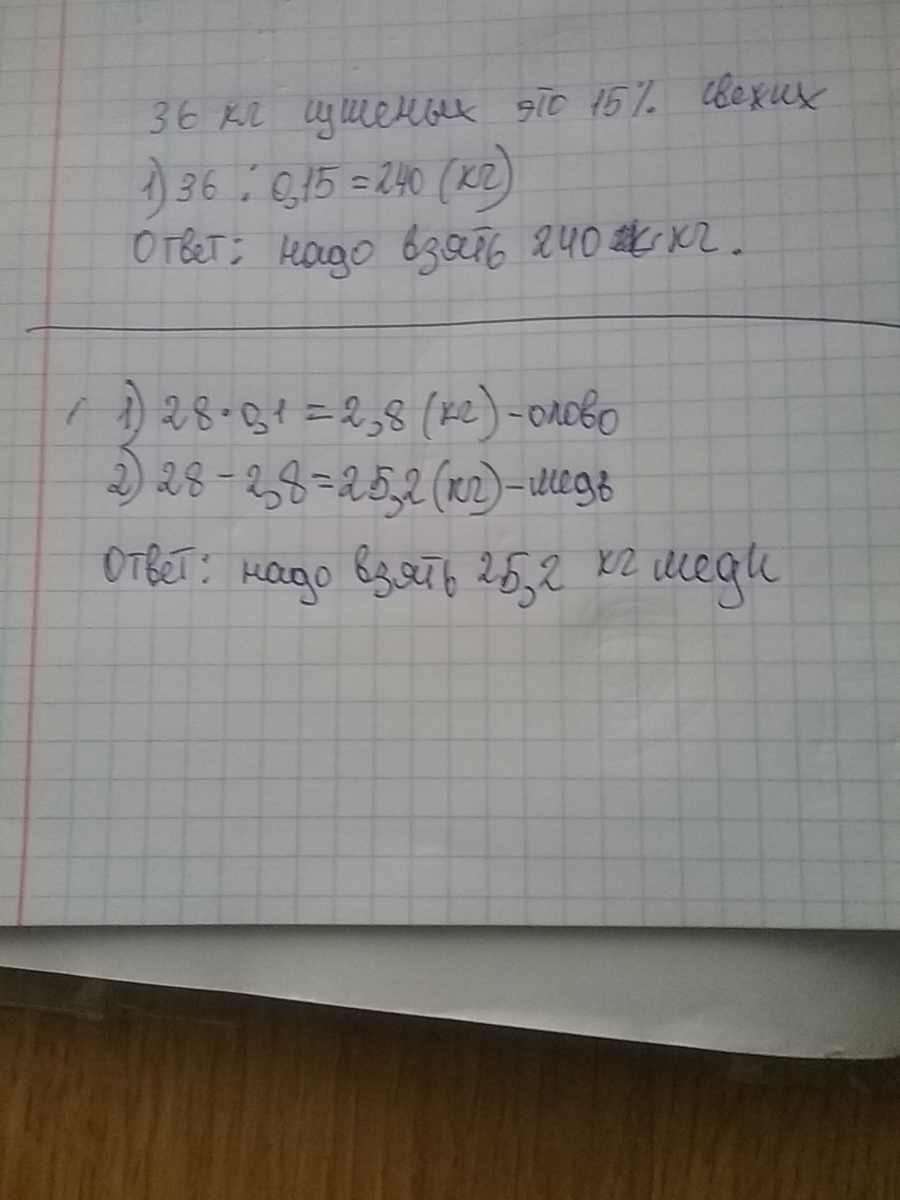 36 кг сушеных это 15% свежих
1) 36 : 0,15 = 240 (кг)
Ответ: надо взять 240 кг.
1) 28 · 0,1 = 2,8 (кг) - олово
2) 28 - 2,8 = 25,2 (кг) - медь
Ответ: надо взять 25,2 кг меди